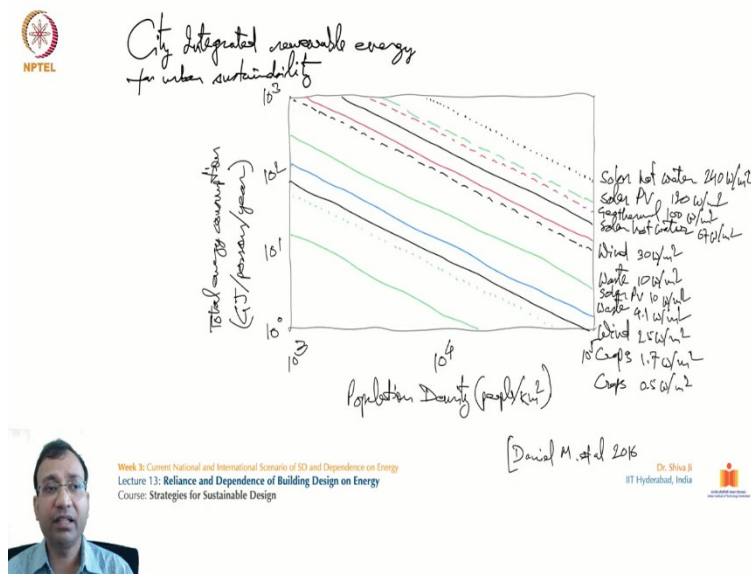 NPTEL
City Integrated renewable energy
for urban sustainability
10³
10²
10¹
10⁰
Total energy consumption
(GJ/persons/year)
10³
10⁴
10⁵
Population Density (people/km²)
Solar hot water 240 W/m²
Solar PV 120 W/m²
Geothermal 100 W/m²
Solar hot water 67 W/m²
Wind 30 W/m²
Waste 10 W/m²
Solar PV 10 W/m²
Waste 4.1 W/m²
Wind 2.5 W/m²
Crops 1.7 W/m²
Crops 0.5 W/m²
[Daniel M. et al 2016
Week 3: Current National and International Scenario of SD and Dependence on Energy
Lecture 13: Reliance and Dependence of Building Design on Energy
Course: Strategies for Sustainable Design
Dr. Shiva Ji
IIT Hyderabad, India